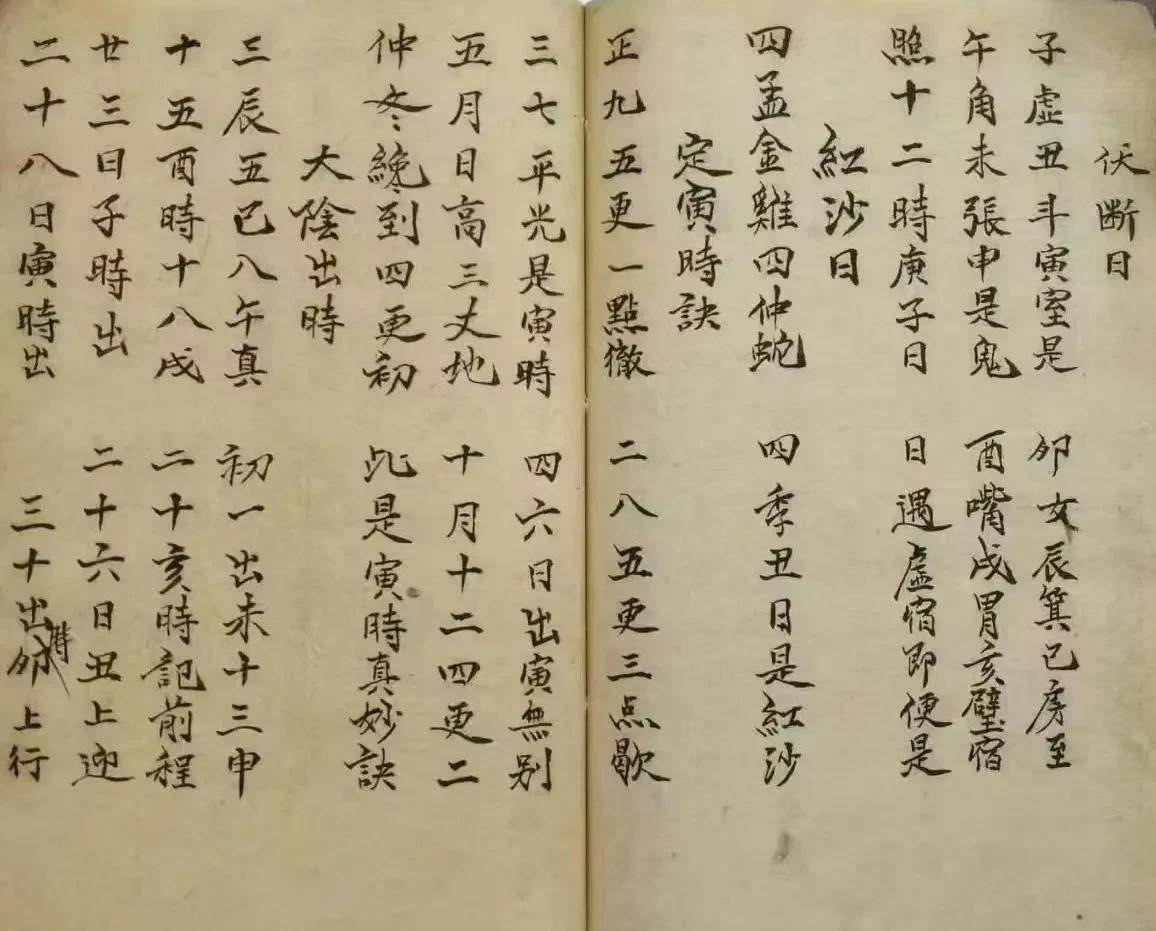 伏断日
子虚丑斗寅室是 夘女辰箕巳房至
午角未張申是鬼 酉嘴戌胃亥壁宿
照十二時庚子日 日遇虚宿即便是
紅沙日
四孟金雞四仲蛇 四季丑日是紅沙
定寅時訣
正九五更一點徹 二八五更三点歇
三七平光是寅時 四六日出寅無别
五月日高三丈地 十月十二四更二
仲冬纔到四更初 此是寅時真妙訣
大陰出時
三辰五巳八午真 初一出未十三申
十五酉時十八戌 二十亥時記前程
廿三日子時出 二十六日丑上迎
二十八日寅時出 三十出夘時上行